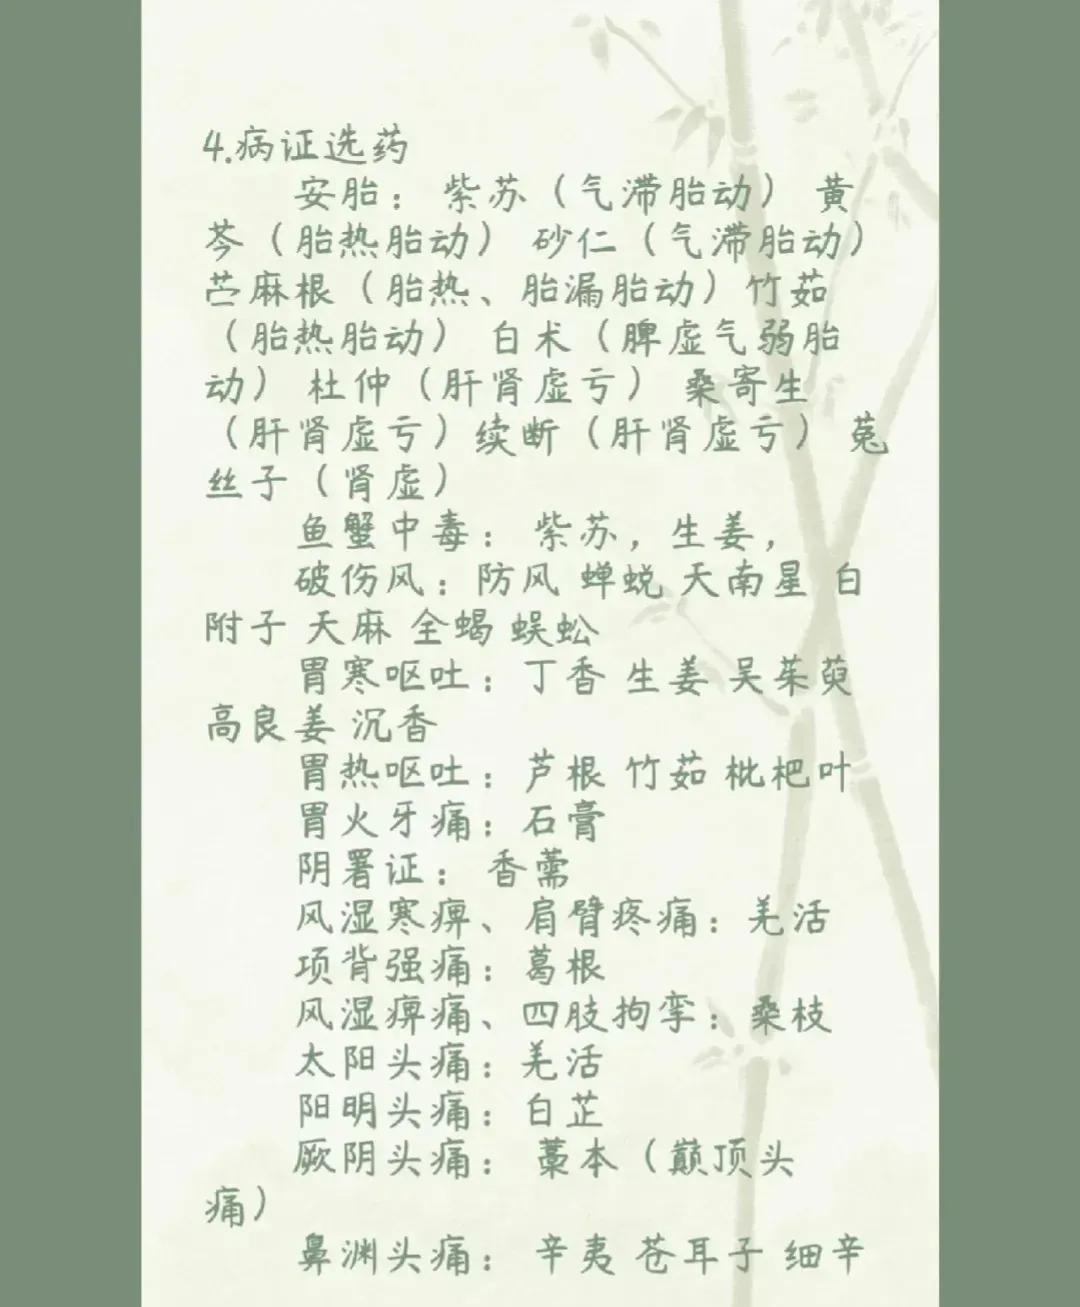 4.病证选药
安胎：紫苏（气滞胎动） 黄
芩（胎热胎动） 砂仁（气滞胎动）
苎麻根（胎热、胎漏胎动）竹茹
（胎热胎动） 白术（脾虚气弱胎
动） 杜仲（肝肾虚亏） 桑寄生
（肝肾虚亏）续断（肝肾虚亏） 菟
丝子（肾虚）
鱼蟹中毒：紫苏，生姜，
破伤风：防风 蝉蜕 天南星 白
附子 天麻 全蝎 蜈蚣
胃寒呕吐：丁香 生姜 吴茱萸
高良姜 沉香
胃热呕吐：芦根 竹茹 枇杷叶
胃火牙痛：石膏
阴署证：香薷
风湿寒痹、肩臂疼痛：羌活
项背强痛：葛根
风湿痹痛、四肢拘挛：桑枝
太阳头痛：羌活
阳明头痛：白芷
厥阴头痛：藁本（巅顶头
痛）
鼻渊头痛：辛夷 苍耳子 细辛